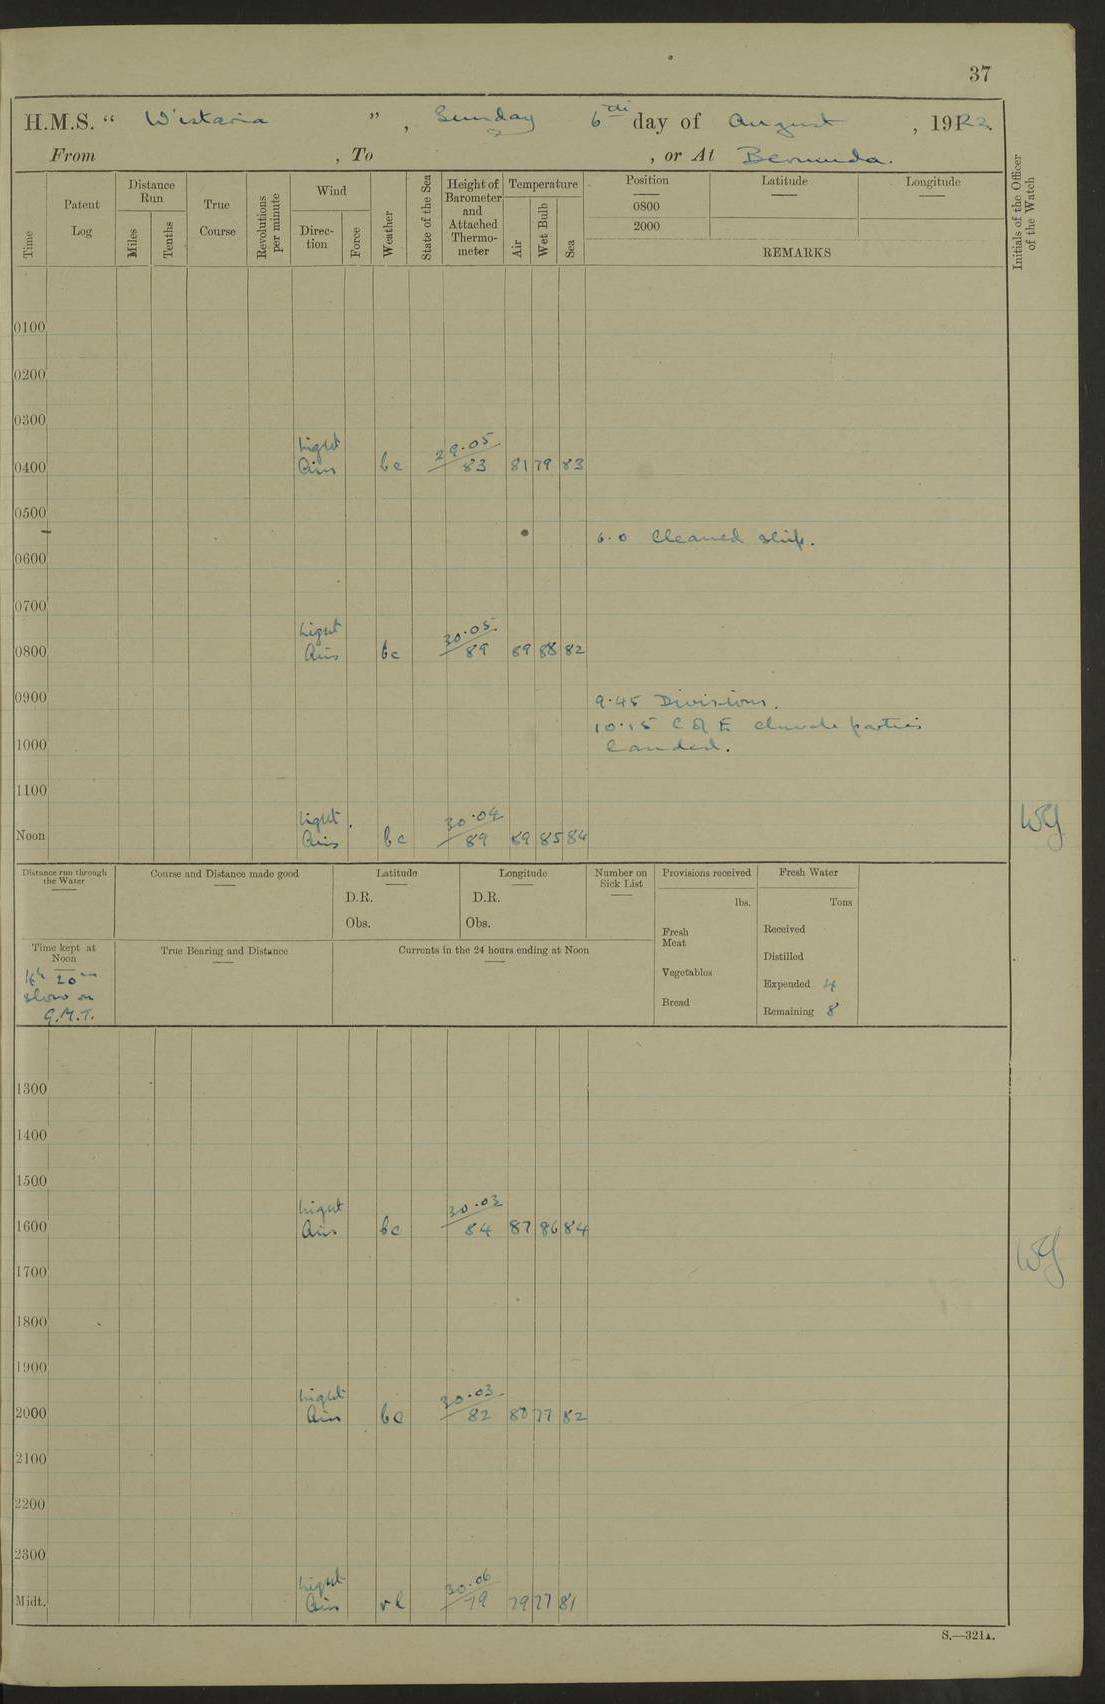 37
H.M.S. " Wistaria ", Sunday 6th day of August, 1922.
From , To , or At Bermuda.
Time
Patent Log
Distance Run
Miles
Tenths
True Course
Revolutions per minute
Wind
Direc-tion
Force
Weather
State of the Sea
Height of Barometer and Attached Thermo-meter
Temperature
Air
Wet Bulb
Sea
Position
0800
2000
Latitude
Longitude
REMARKS
Initials of the Officer of the Watch
0100
0200
0300
Light 29.05
0400 Airs bc 83 81 79 83
0500
6.0 Cleaned ship.
0600
0700
Light 30.05
0800 Airs bc 89 89 88 82
0900 9.45 Divisions.
10.15 C of E church parties
1000 landed.
1100
Light 30.04
Noon Airs bc 89 89 85 84
WG
Distance run through the Water
Course and Distance made good
Latitude
D.R.
Obs.
Longitude
D.R.
Obs.
Number on Sick List
Provisions received
lbs.
Fresh Meat
Vegetables
Bread
Fresh Water
Tons
Received
Distilled
Expended 4
Remaining 8
Time kept at Noon
4h 20m
slow on
G.M.T.
True Bearing and Distance
Currents in the 24 hours ending at Noon
1300
1400
1500
Light 30.03
1600 Airs bc 84 87 86 84
WG
1700
1800
1900
Light 30.03
2000 Airs bc 82 80 77 82
2100
2200
2300
Light 30.06
Midt. Airs 79 79 77 81
S.—321A.